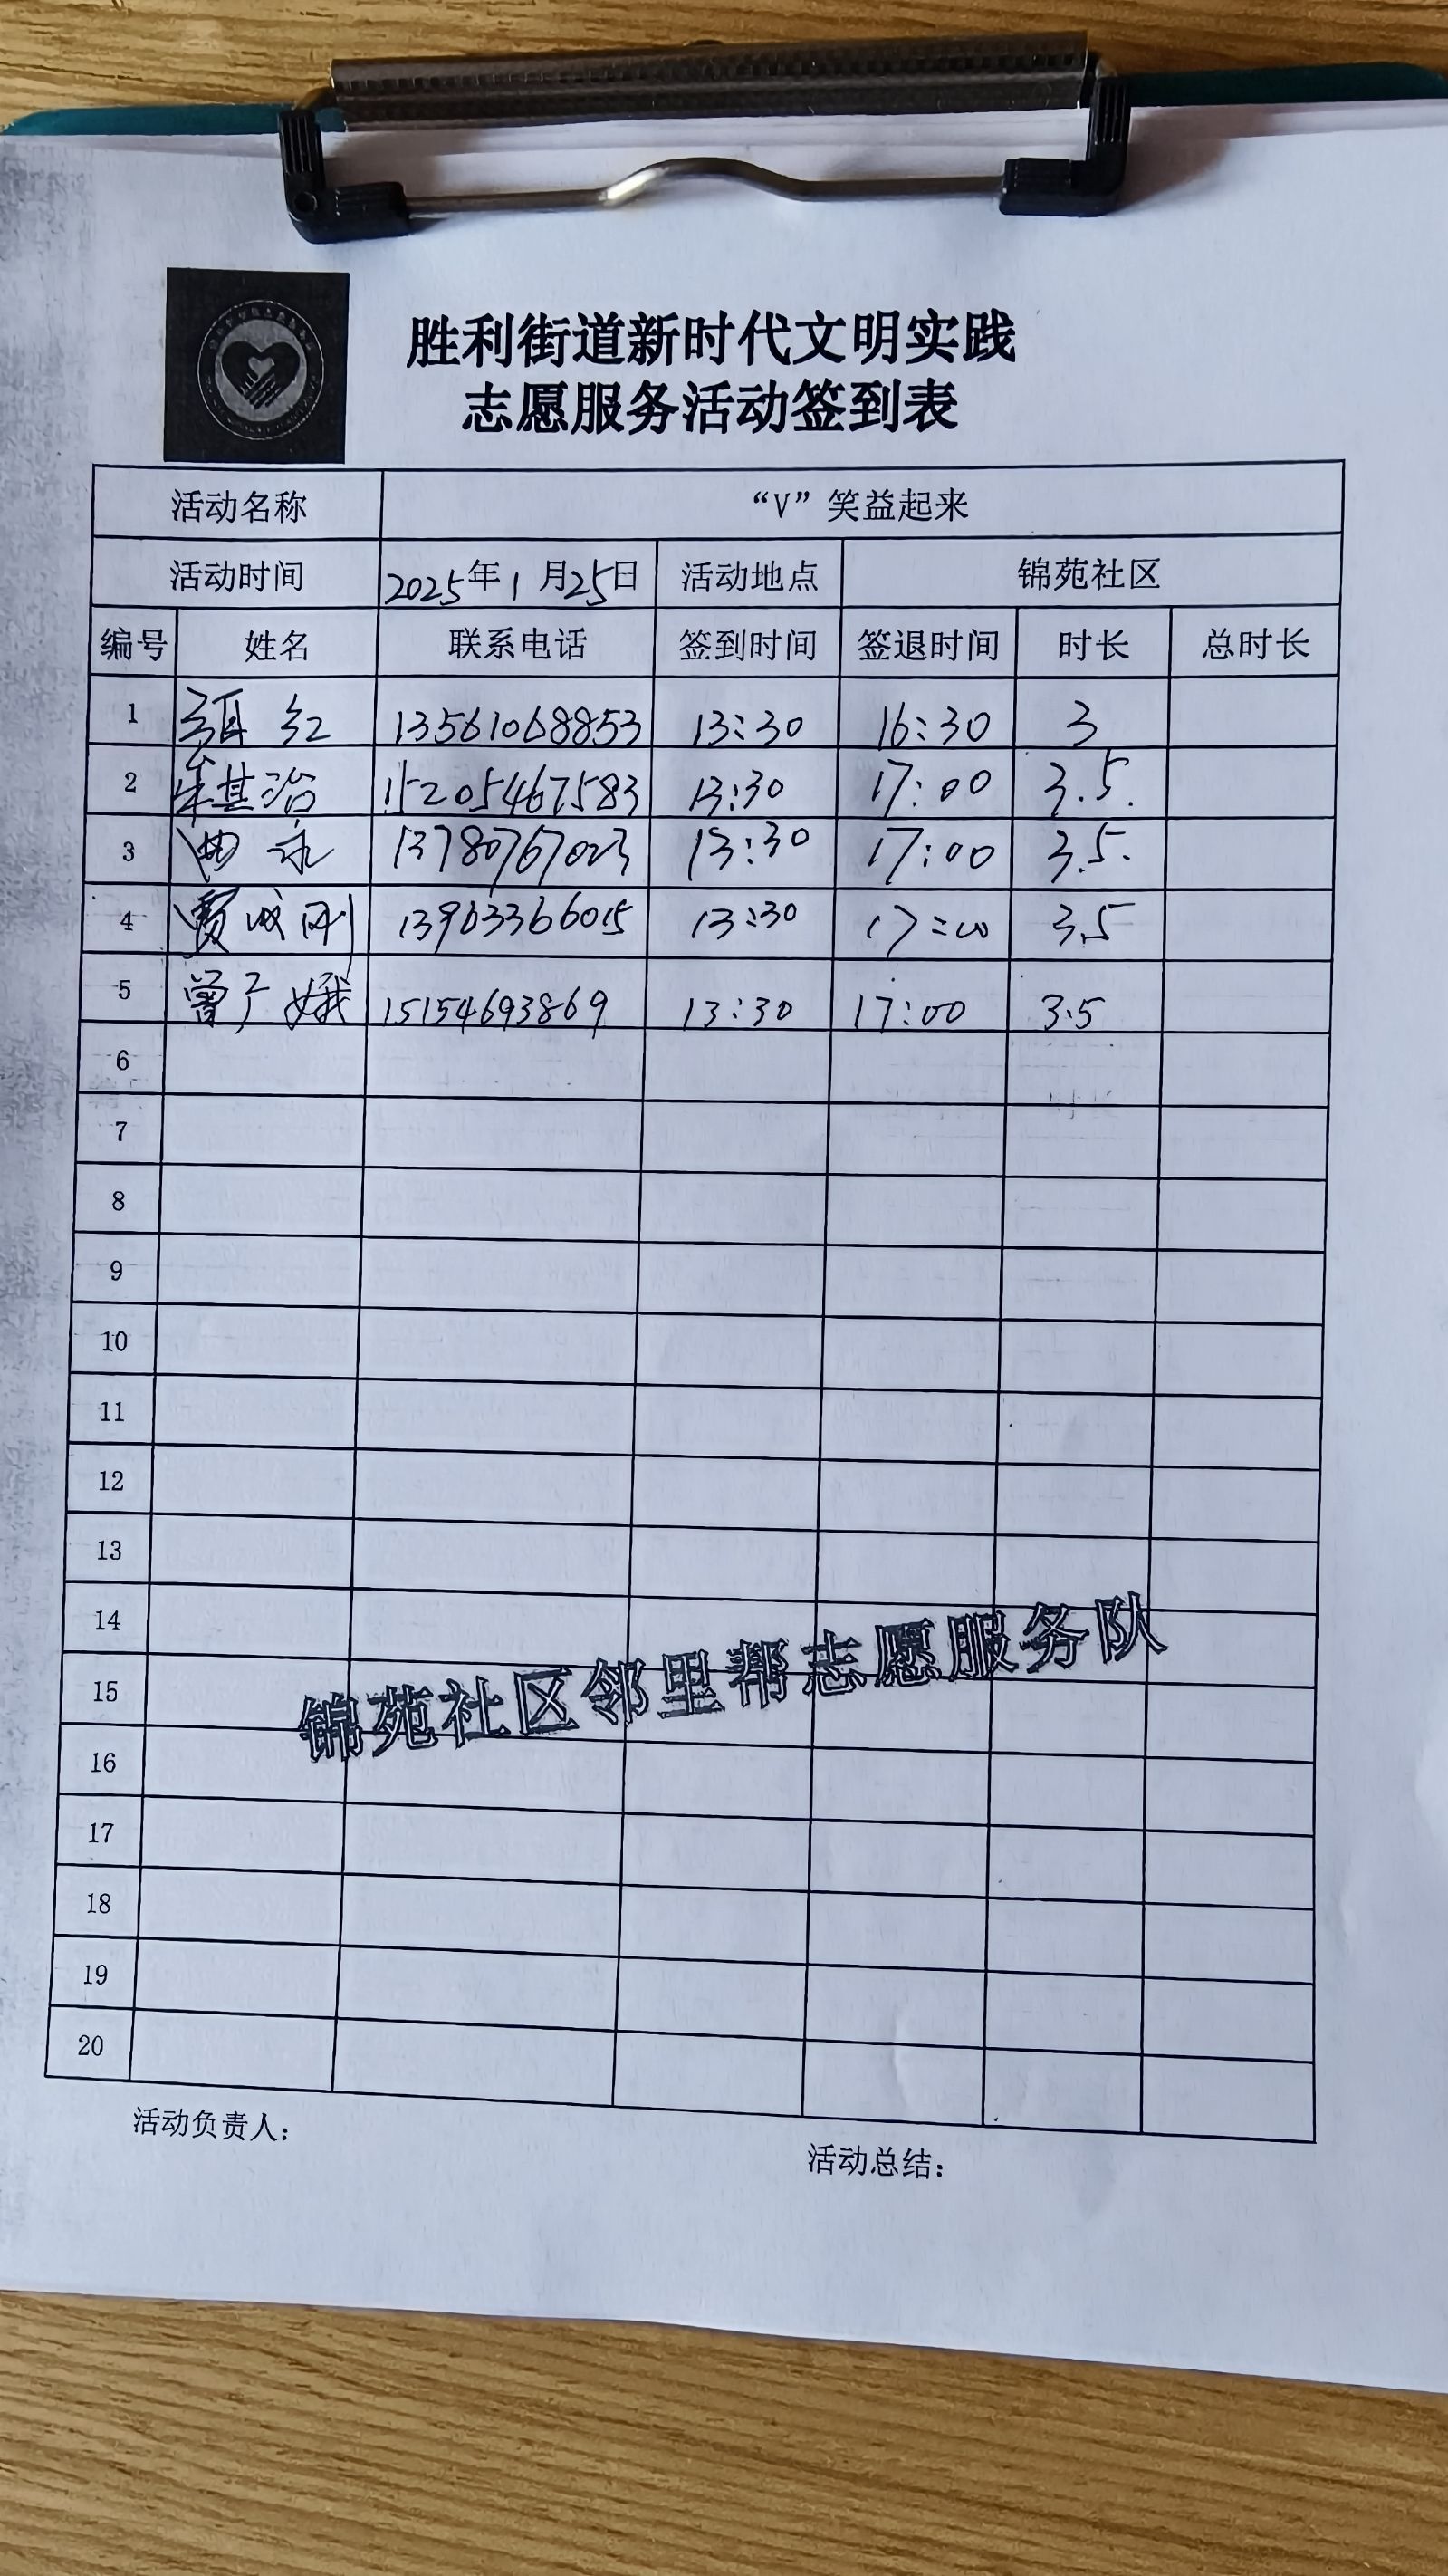 胜利街道新时代文明实践
志愿服务活动签到表
活动名称 “V”笑益起来
活动时间 2025年1月25日 活动地点 锦苑社区
编号 姓名 联系电话 签到时间 签退时间 时长 总时长
1 红 13561068853 13:30 16:30 3
2 牟其治 15205467583 13:30 17:00 3.5.
3 曲 13780767023 13:30 17:00 3.5.
4 贾成刚 13963366015 13:30 17:00 3.5
5 曾广娥 15154693869 13:30 17:00 3.5
6
7
8
9
10
11
12
13
14
15
16
17
18
19
20
锦苑社区邻里帮志愿服务队
活动负责人：
活动总结：